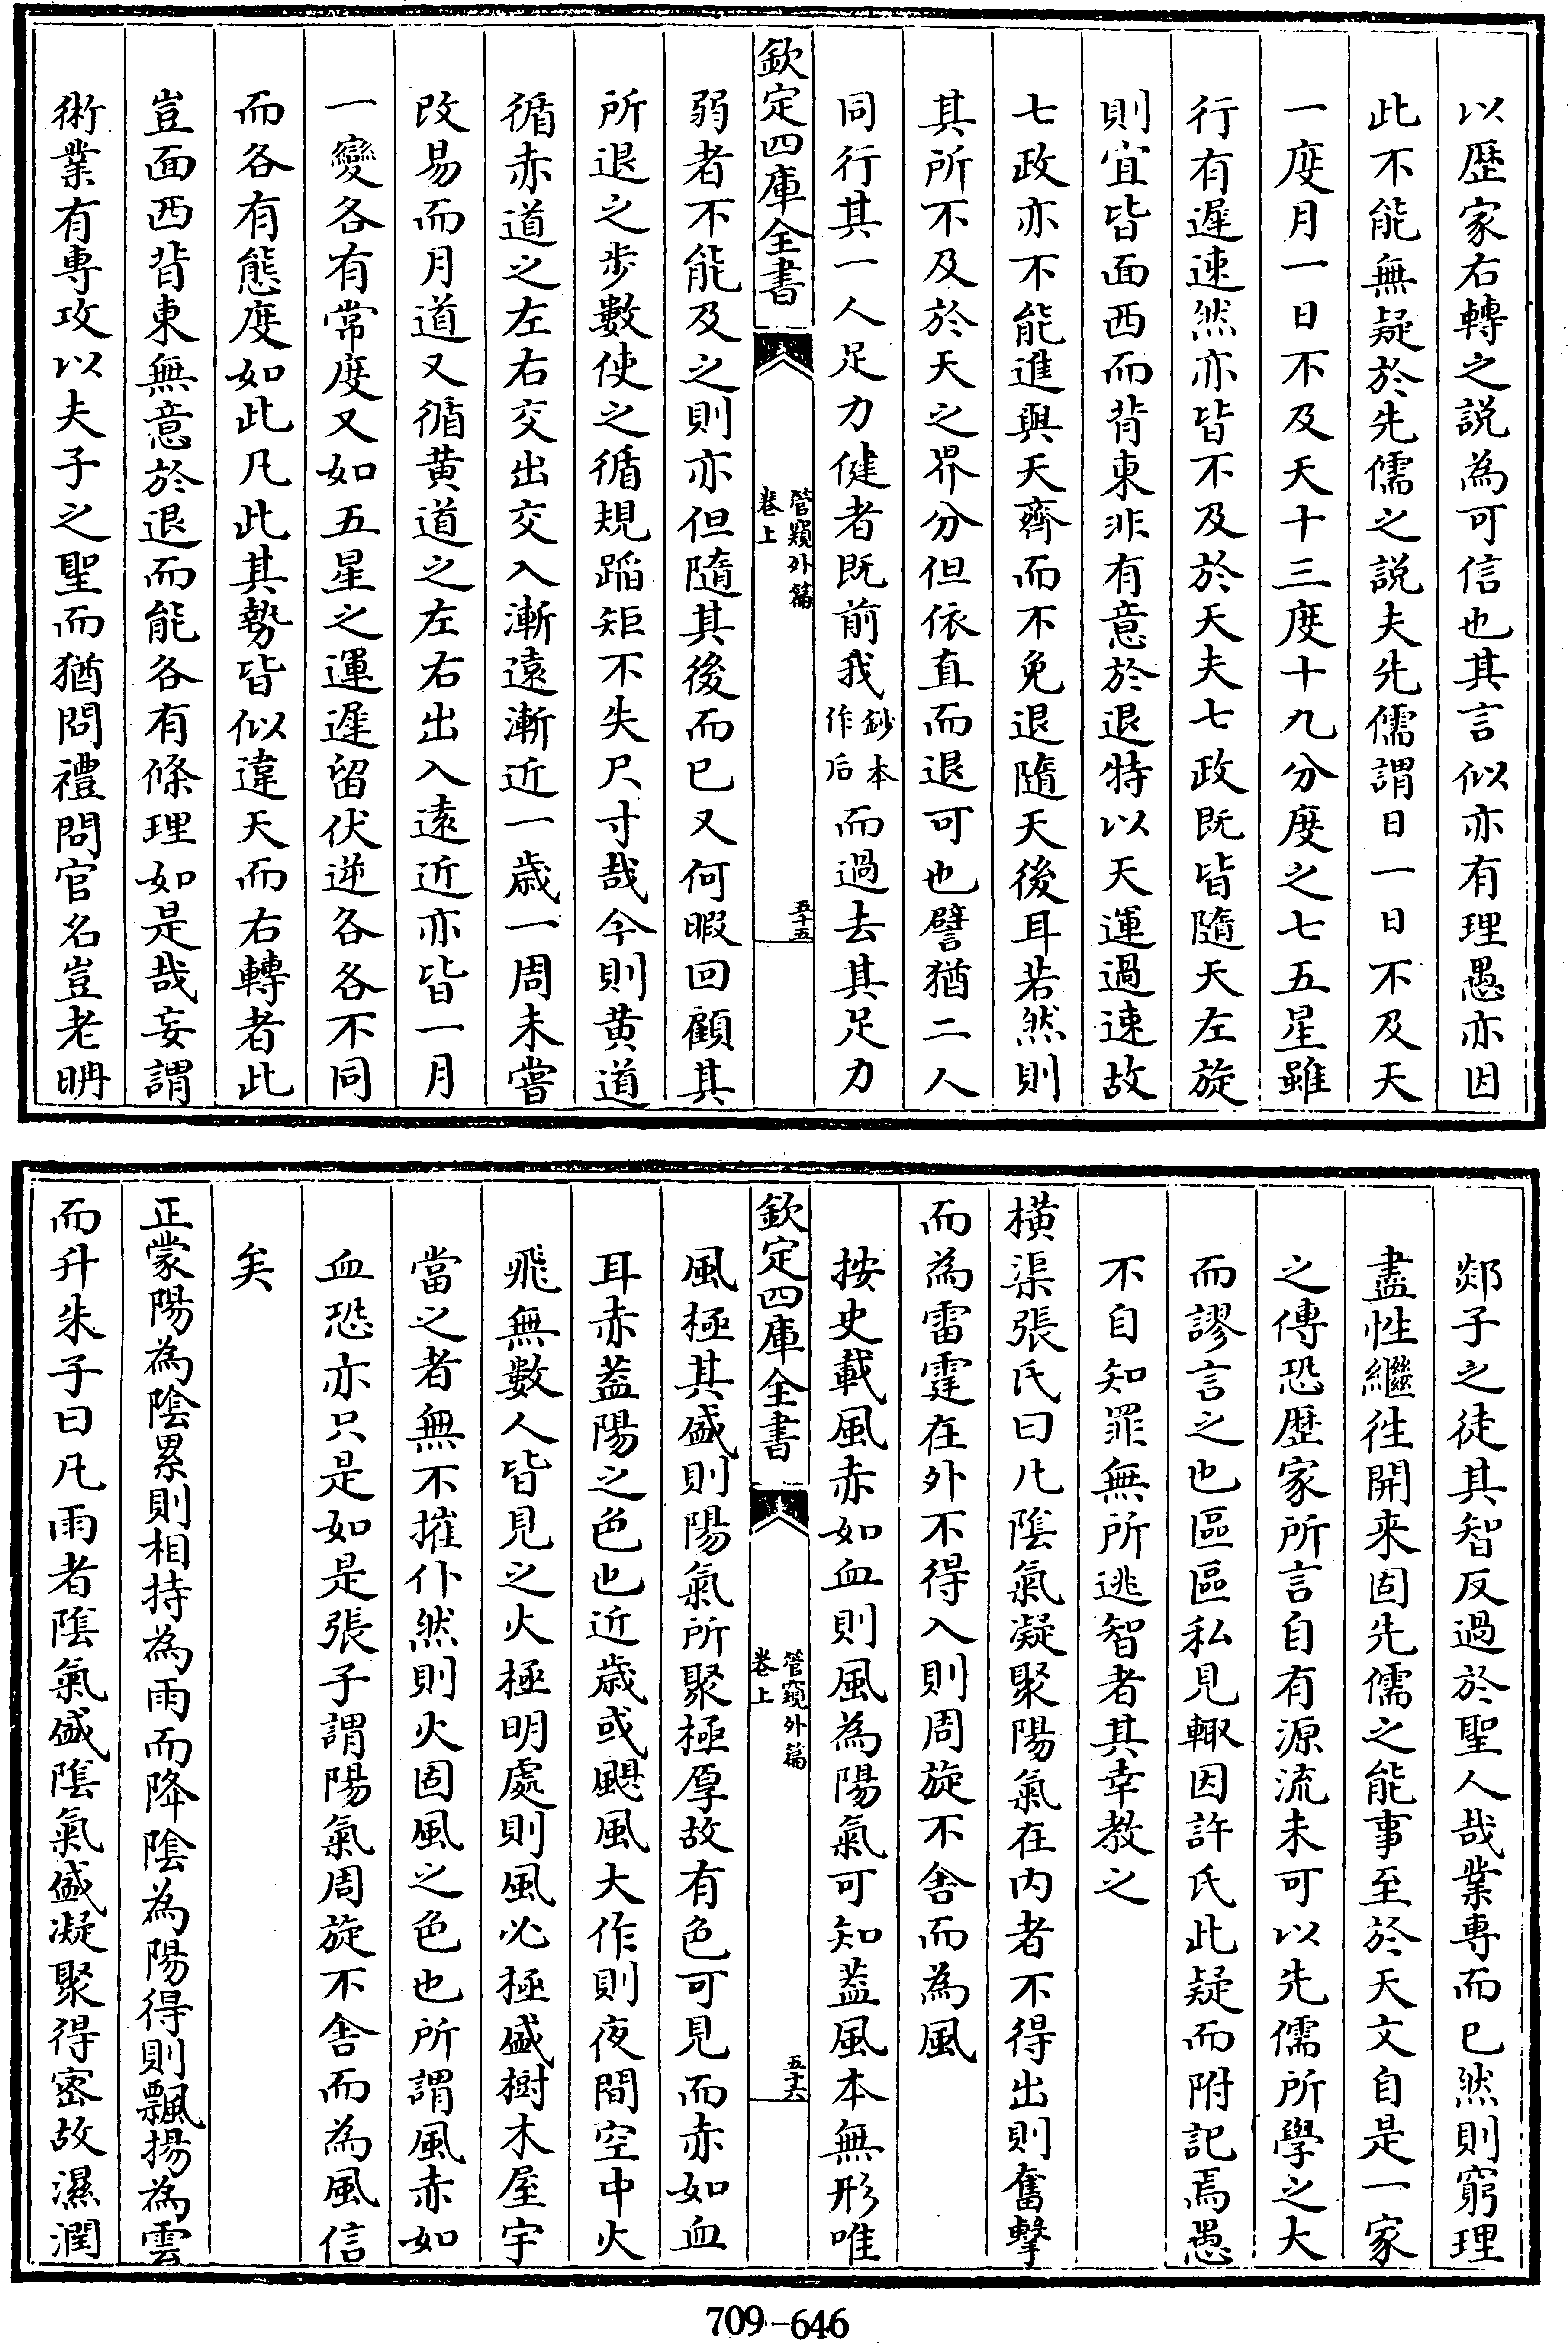 以歴家右轉之説為可信也其言似亦有理愚亦因
此不能無疑於先儒之説夫先儒謂日一日不及天
一度月一日不及天十三度十九分度之七五星雖
行有遲速然亦皆不及於天夫七政既皆隨天左旋
則宜皆面西而背東非有意於退特以天運過速故
七政亦不能進與天齊而不免退隨天後耳若然則
其所不及於天之界分但依直而退可也譬猶二人
同行其一人足力健者既前我鈔本作后而過去其足力
欽定四庫全書
管窺外篇
卷上
五十五
弱者不能及之則亦但隨其後而已又何暇回顧其
所退之步數使之循規蹈矩不失尺寸哉今則黄道
循赤道之左右交出交入漸遠漸近一歲一周未嘗
改易而月道又循黄道之左右出入遠近亦皆一月
一變各有常度又如五星之運遲留伏逆各各不同
而各有態度如此凡此其勢皆似違天而右轉者此
豈面西背東無意於退而能各有條理如是哉妄謂
術業有專攻以夫子之聖而猶問禮問官名豈老聃
郯子之徒其智反過於聖人哉業專而已然則窮理
盡性繼往開来固先儒之能事至於天文自是一家
之傳恐歴家所言自有源流未可以先儒所學之大
而謬言之也區區私見輙因許氏此疑而附記焉愚
不自知罪無所逃智者其幸教之
橫渠張氏曰凡隂氣凝聚陽氣在内者不得出則奮擊
而為雷霆在外不得入則周旋不舍而為風
按史載風赤如血則風為陽氣可知葢風本無形唯
欽定四庫全書
管窺外篇
卷上
五十六
風極其盛則陽氣所聚極厚故有色可見而赤如血
耳赤葢陽之色也近歲或颶風大作則夜間空中火
飛無數人皆見之火極明處則風必極盛樹木屋宇
當之者無不摧仆然則火固風之色也所謂風赤如
血恐亦只是如是張子謂陽氣周旋不舍而為風信
矣
正蒙陽為陰累則相持為雨而降陰為陽得則飄揚為雲
而升朱子曰凡雨者隂氣盛隂氣盛凝聚得密故濕潤
709-646